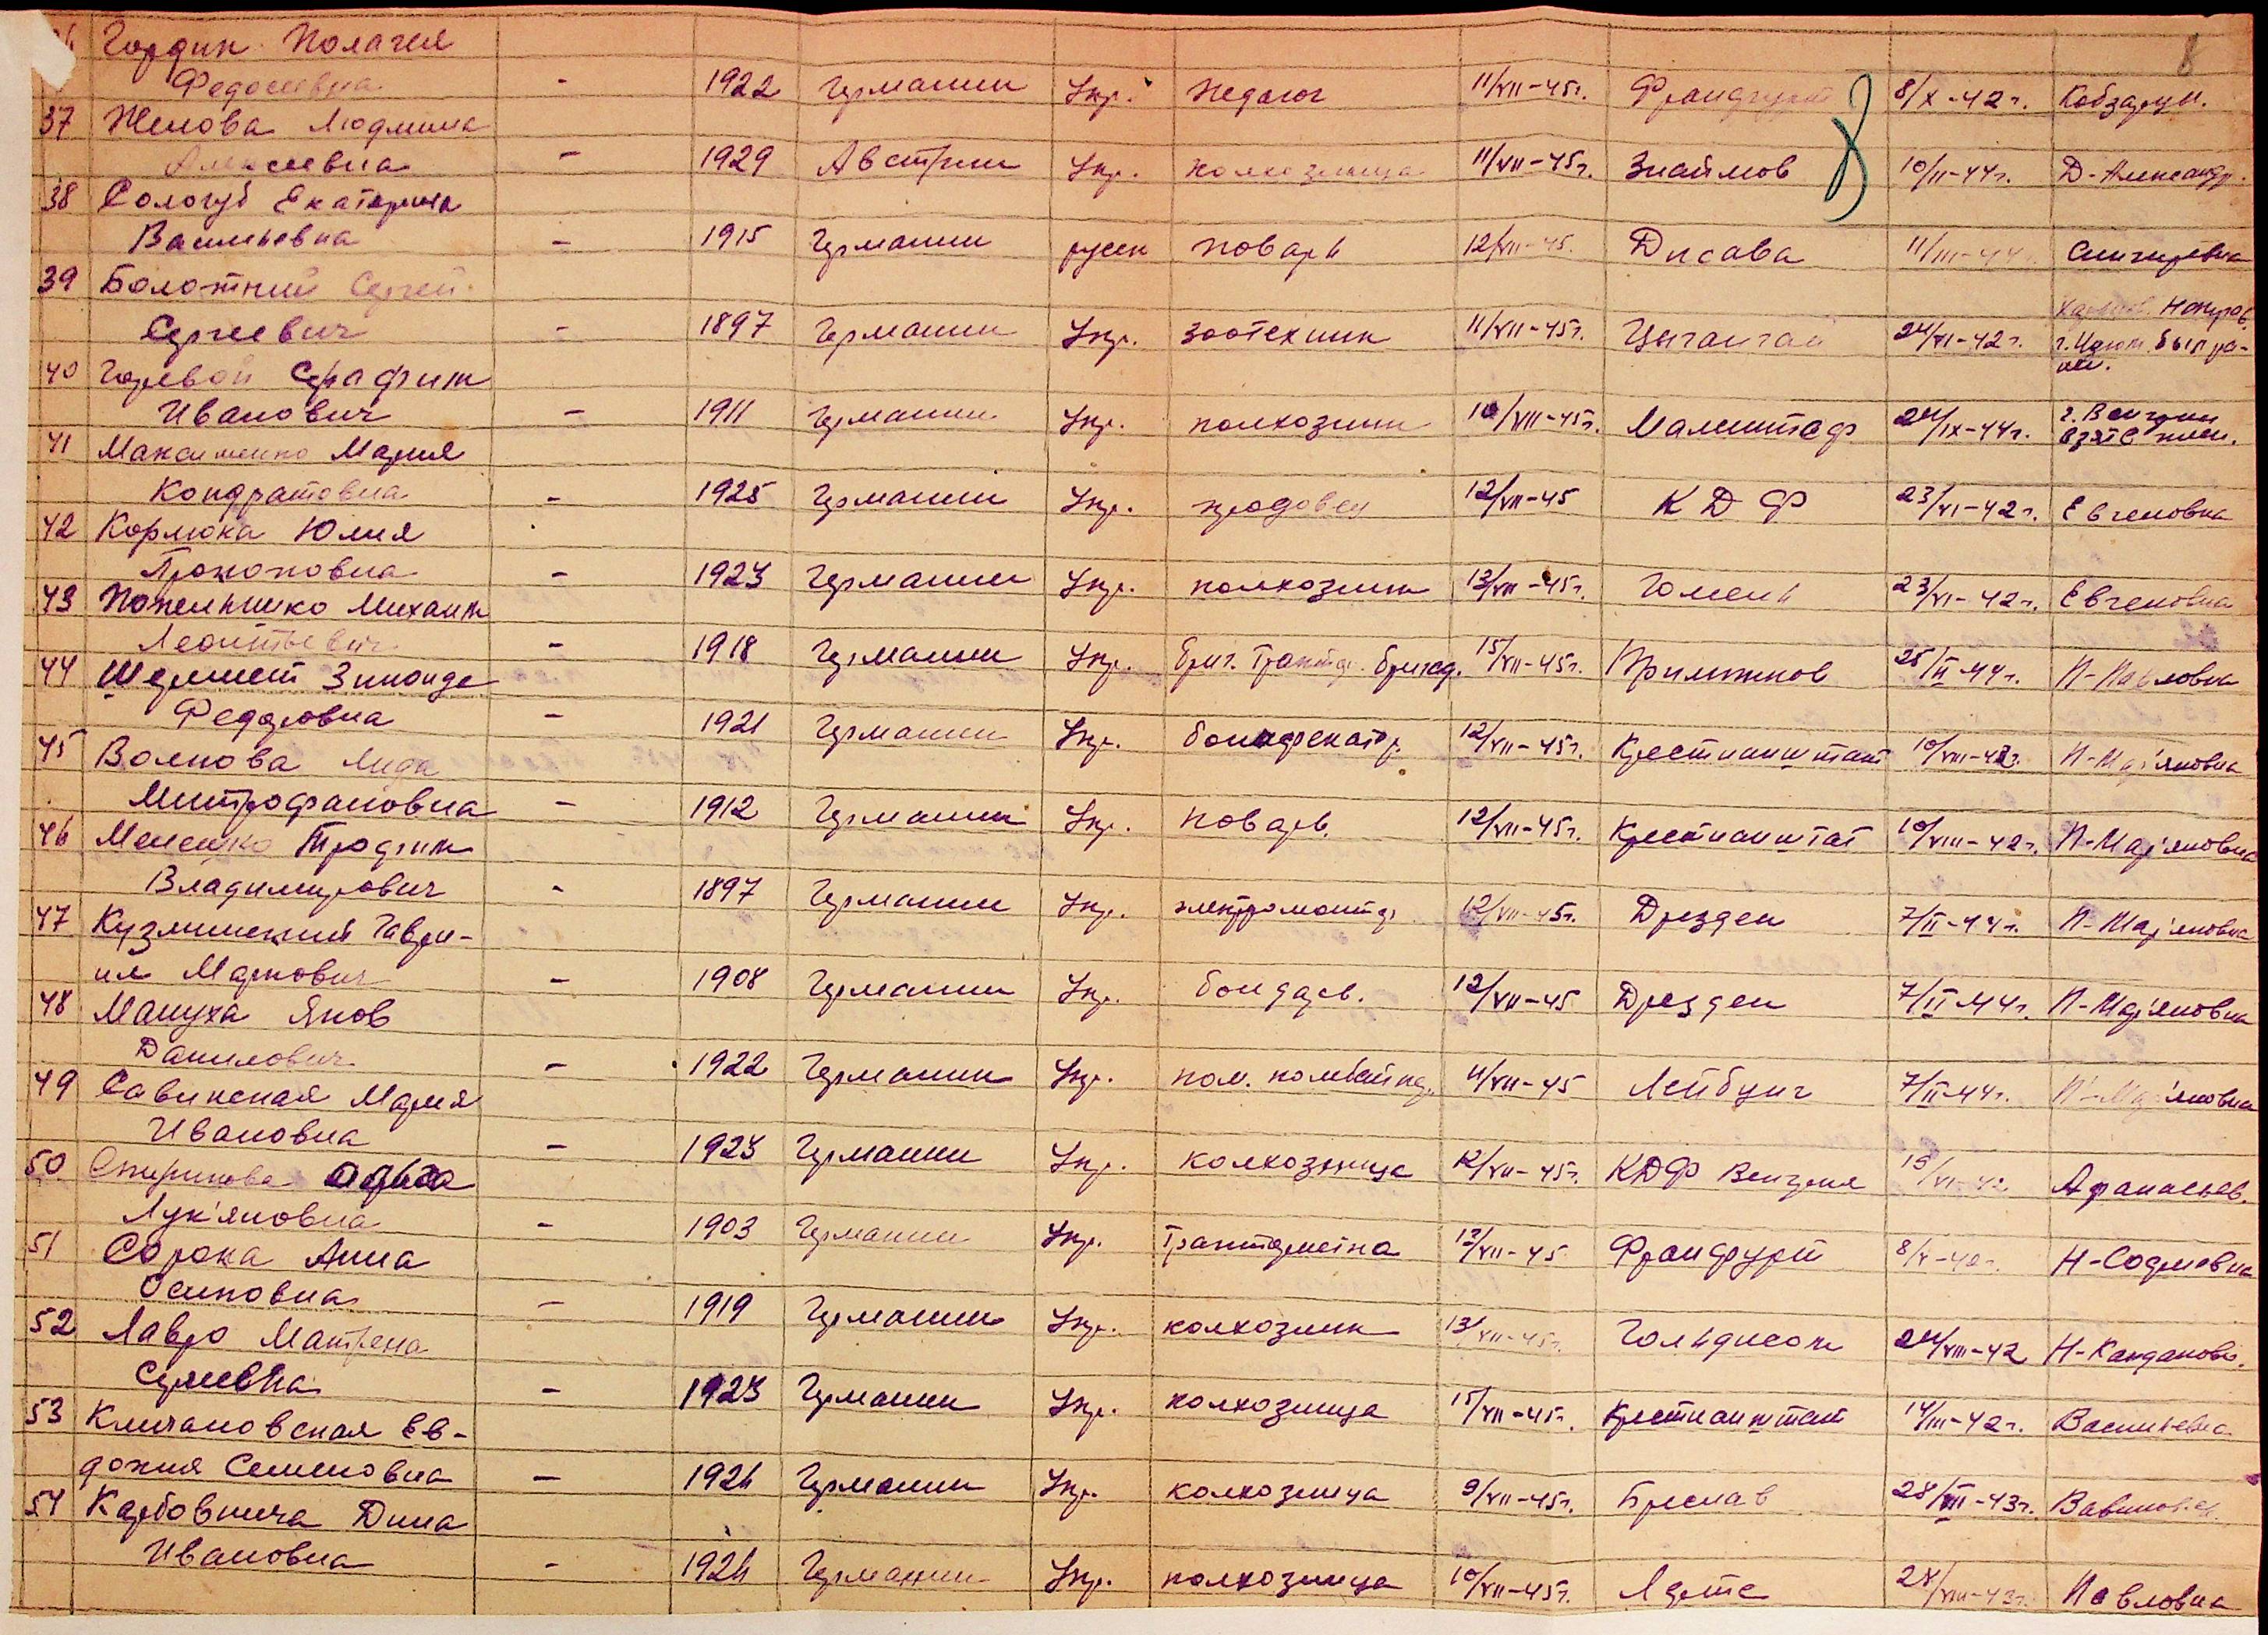 Гордик Полагея
8
Федосеевна - 1922 Германии Укр. педагог 11/VII-45г. Франфурт 8/X-42г. Кобзарци.
37 Жилова Людмила
Алексеевна - 1929 Австрии Укр. колхозница 11/VII-45г. Знаймов 10/II-44г. Д-Александр.
38 Сологуб Екатерина
Васильевна - 1915 Германии русск поварь 12/VII-45. Дисава 11/III-44 Снигиревка
39 Болотний Сергей
Сергеевич - 1897 Германии Укр. зоотехник 11/VII-45г. Цыганган 24/XI-42г. г. Изюм был ра-
40 Горевой Серафим
Иванович - 1911 Германии Укр. колхозник 10/VII-45г. Малиштаф 24/IX-44г. г. Венгрии взят в плен.
41 Максименко Мария
Кондратовна - 1925 Германии Укр. продовец 12/VII-45 КДФ 23/VI-42г. Евгеновка
42 Кормюка Юлия
Прокоповна - 1923 Германии Укр. колхозник 13/VII-45г. Гомень 23/VI-42г. Евгеновка
43 Попельнико Михаил
Леонтьевич - 1918 Германии Укр. бриг. трактор. бригад. 15/VII-45г. Примтков 25/II-44г. П-Павловка
44 Шеремет Зинаида
Федоровна - 1921 Германии Укр. 12/VII-45г. Крестианштат 10/VIII-42г. П-Мар'яновка
45 Волкова Лида
Митрофановна - 1912 Германии Укр. поварь. 12/VII-45г. Крестианштат 10/VIII-42г. П-Мар'яновка
46 Менейко Трофим
Владимирович - 1897 Германии Укр. электромонтер 12/VII-45г. Дрезден 7/II-44г. П-Мар'яновка
47 Кузминский Гаври-
ил Маркович - 1908 Германии Укр. бондарь. 12/VII-45 Дрезден 7/II-44г. П-Мар'яновка
48 Мануха Яков
Данилович - 1922 Германии Укр. пом. комбайнер. 11/VII-45 Лейбциг 7/II-44г. П-Мар'яновка
49 Савинская Мария
Ивановна - 1923 Германии Укр. колхозница 12/VII-45г. КДФ Венгрия 19/VI-42 Афанасьев.
50 Спирикова
Лук'яновна - 1903 Германии Укр. трактористка 12/VII-45 Франфурт 8/X-42г. Н-Софиевка
51 Сорока Анна
Осиповна - 1919 Германии Укр. колхозник 13/VII-45г. Гольдисон 24/VIII-42 Н-Кандаково.
52 Лавро Матрена
Сергеевна - 1923 Германии Укр. колхозница 15/VII-45г. Крестианштат 14/III-42г. Васильевка
53 Климановская Ев-
докия Семеновна - 1924 Германии Укр. колхозница 9/VII-45г. Бреслав 28/VIII-43г.
54 Карбовнича Дина
Ивановна - 1924 Германии Укр. колхозница 10/VII-45г. Лерте 28/VIII-43г. Павловка